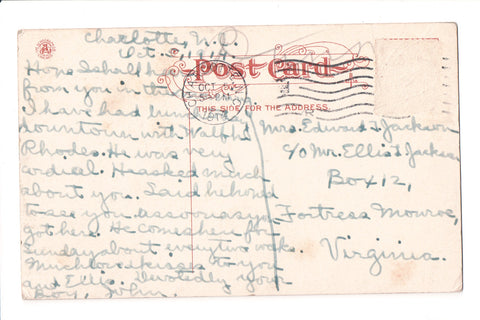 Charlotte, N.C.
Oct. 5, 1914
Post Card
THIS SIDE FOR THE ADDRESS.
OCT 5
Hope I shall hear
from you in the
I have had lunch
downtown with Walph
Rhodes. He was very
cordial. He asked much
about you. Said he hoped
to see you as soon as you
got here. He comes here for
Sunday about every two weeks.
Much love & kisses to you
and Ellis. Devotedly your
Boy, John.
Mrs. Edward S. Jackson
c/o Mr. Ellis S. Jackson
Box 12,
Fortress Monroe,
Virginia.